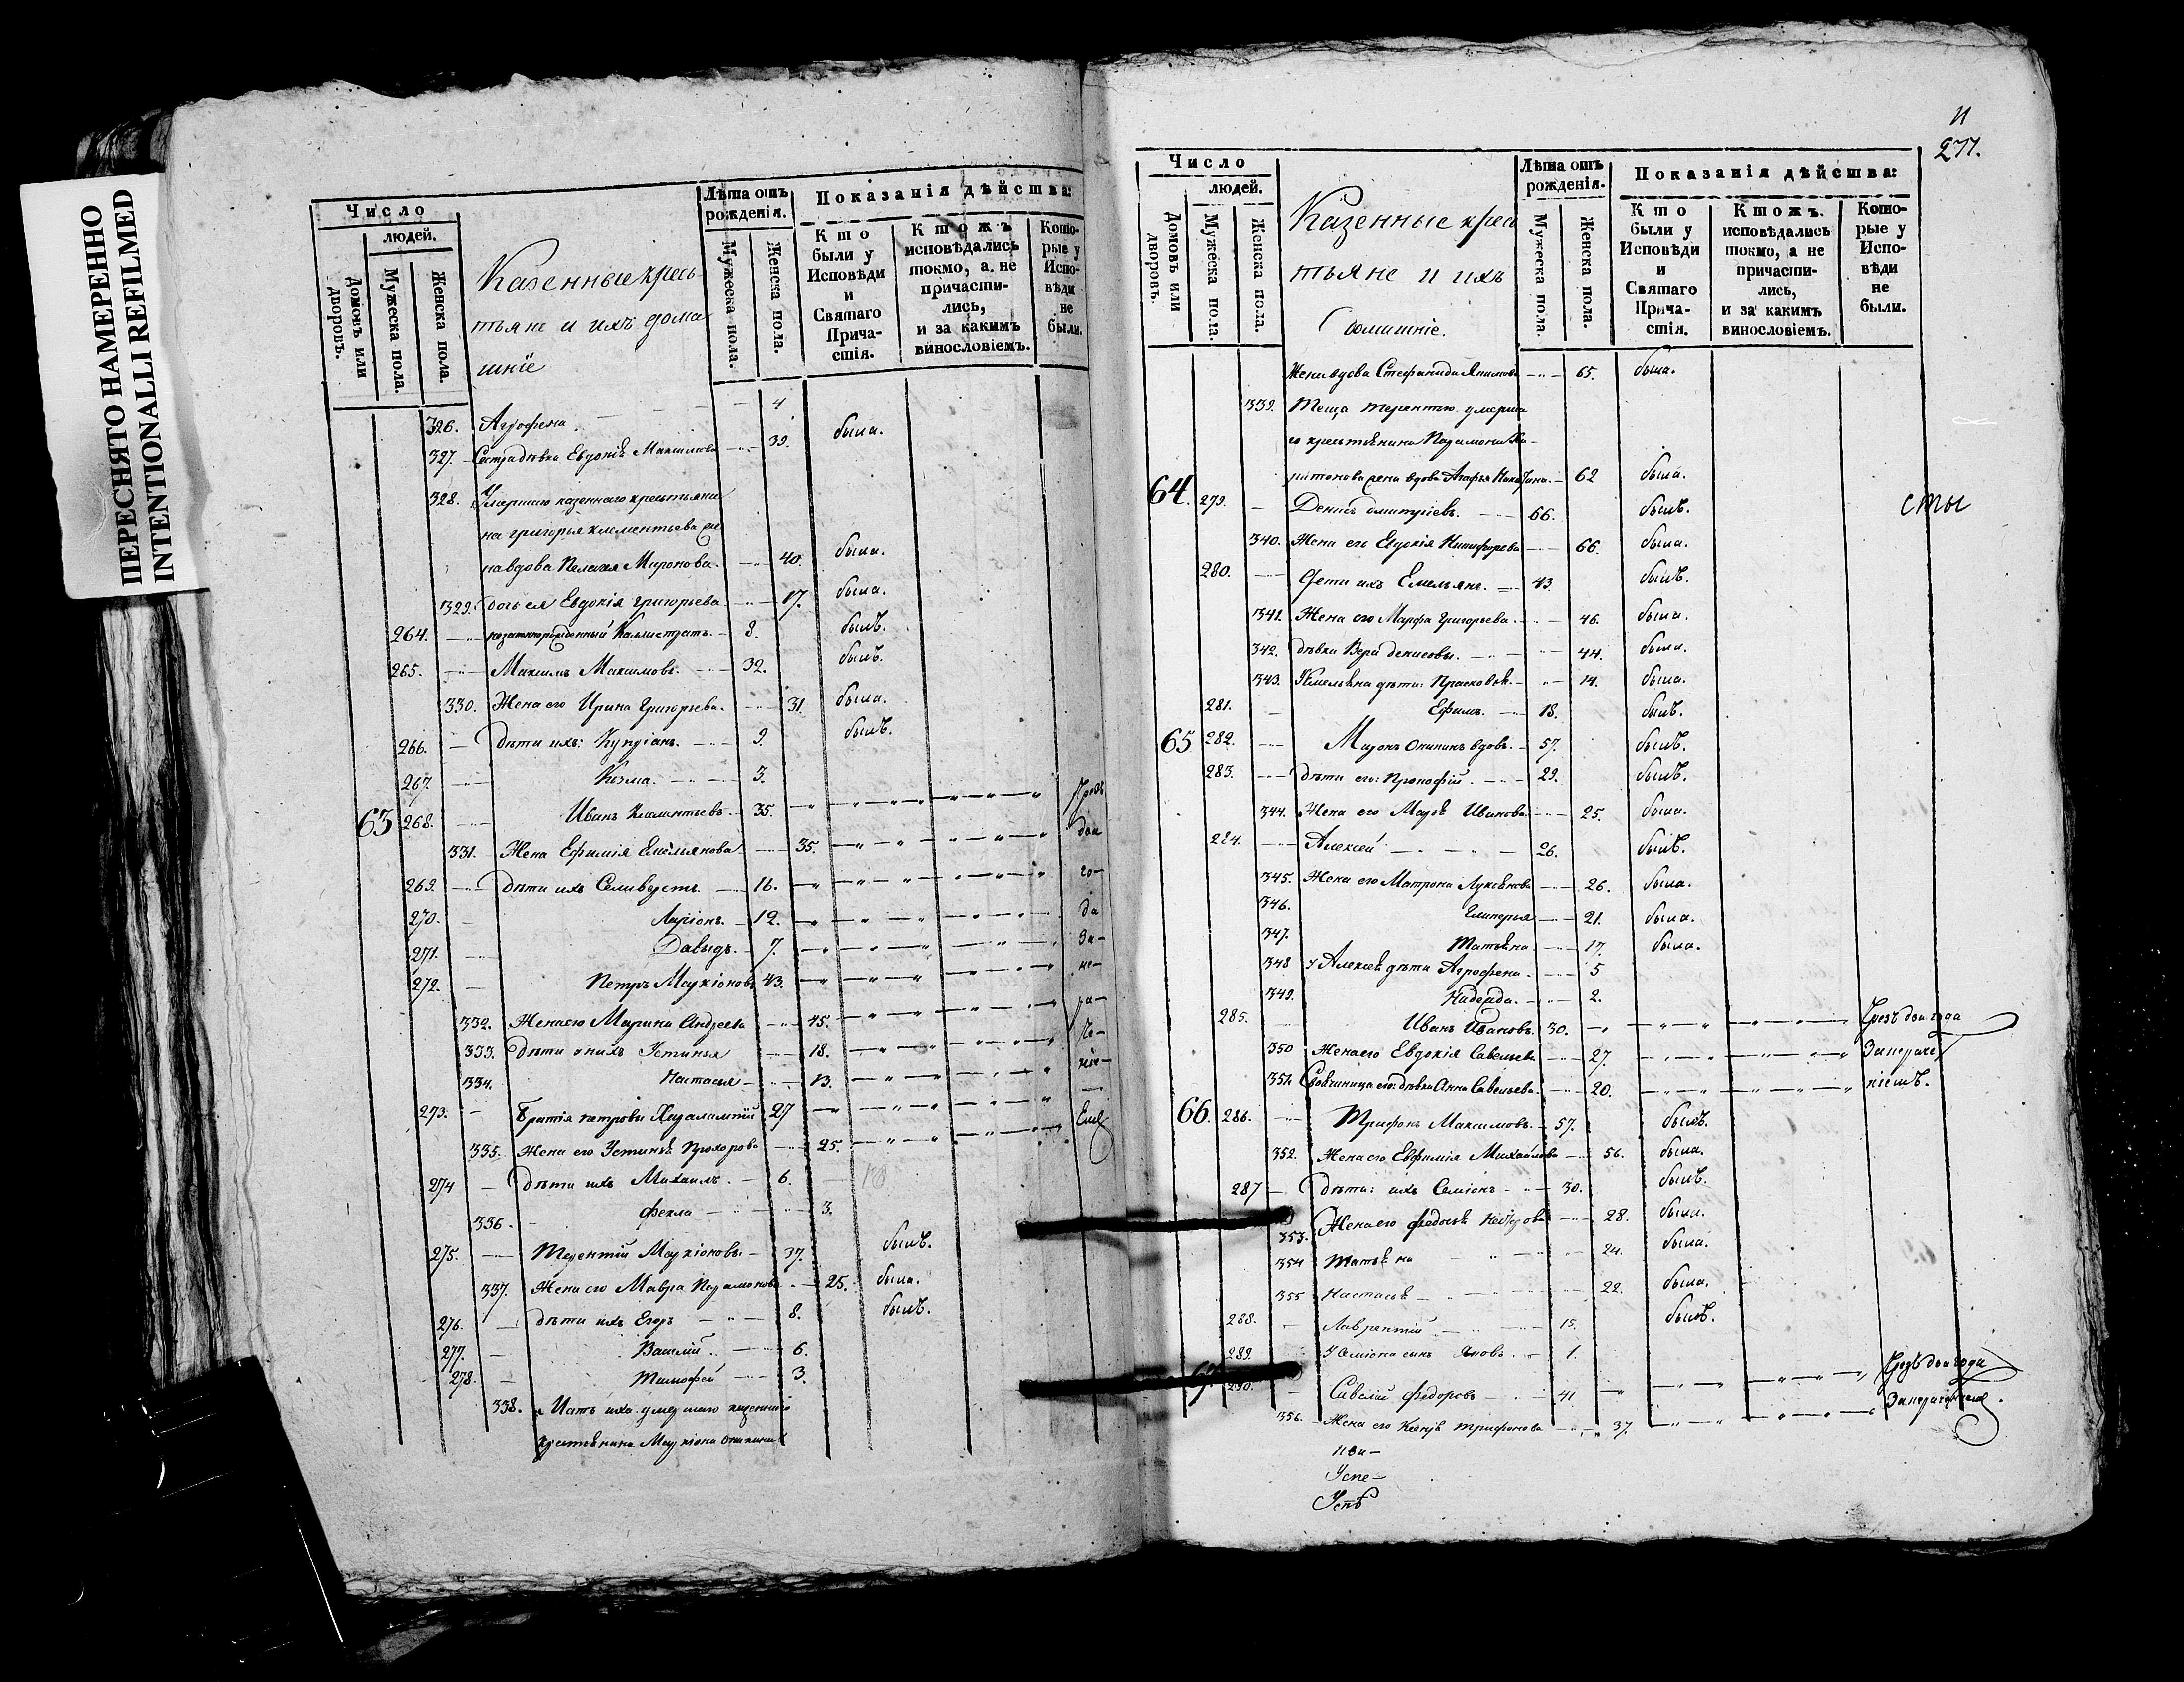 ПЕРЕСНЯТО НАМЕРЕННО
INTENTIONALLI REFILMED
Число
людей.
Домовъ или дворовъ.
Мужеска пола.
Женска пола.
Казенные кресь-
тьяне и ихъ дома
шніе
Лѣта отъ рожденія.
Мужеска пола.
Женска пола.
Показанія дѣйства:
Кто были у Исповѣди и Святаго Прича-стія.
Ктожъ исповѣдались токмо, а не причасти-лись, и за какимъ винословіемъ.
Кото-рые у Испо-вѣди не были.
326. Агрофена 4
327. Сестра дѣвка Евдокія Максимова 39. была.
328. Умершаго казеннаго крестьяни
на григорья клементьева же
на вдова Пелагея Миронова 40. была.
329. дочь ея Евдокія григорьева 17. была.
264. Каллистратъ 8. былъ.
265. Максимъ Максимовъ 32. былъ.
330. Жена его Ирина Григорьева 31. была.
266. Дѣти ихъ: Купріянъ 9. былъ.
267. Козма 3.
63 268. Иванъ Климентьевъ 35. Чрезъ
331. Жена Ефимія Емельянова 35. два
269. Дѣти ихъ Селиверстъ 16. го-
270. Ларіонъ 12. да
271. Давыдъ 7. За-
272. Петръ Маркіоновъ 43. не-
332. Жена его Марина Андреева 45. ра-
333. Дѣти у нихъ Устинья 18. че-
334. Настасья 13. ніе-
273. Братія петровы Харалампій 27
335. Жена его Устинья Прохорова 25.
274 Дѣти ихъ Михаилъ 6.
336 фекла 3.
275. Терентій Маркіоновъ 37. былъ.
337. Жена его Мавра Парамонова 25. была.
276. дѣти ихъ Егоръ 8. былъ.
277. Василій 6.
278. Тимофей 3.
338. Мать ихъ умершаго казеннаго
крестьянина Маркіона
277.
Число
людей.
Домовъ или дворовъ.
Мужеска пола.
Женска пола.
Казенные крес
тьяне и ихъ
домашніе.
Лѣта отъ рожденія.
Мужеска пола.
Женска пола.
Показанія дѣйства:
Кто были у Исповѣди и Святаго Прича-стія.
Ктожъ. исповѣдались токмо, а не причасти-лись, и за какимъ винословіемъ.
Кото-рые у Испо-вѣди не были.
Жена вдова Стефанида Якимова 65. была.
339. Теща терентію умерша
го крестьянина Парамона Ха-
ритонова жена вдова Агафья 62 была.
64. 279. Денисъ дмитріевъ 66. былъ.
сты
340. Жена его Евдокія Никифорова 66. была.
280. Дети ихъ Емельянъ 43 былъ.
341. Жена его Марфа григорьева 46. была.
342. дѣвка Вера денисова 44. была.
343. Емельяна дѣти: Прасковья 14. была.
281. Ефимъ 18. былъ.
65 282. Миронъ вдовъ 57. былъ.
283. Дѣти его: Прокофій 29. былъ.
344. Жена его Марья Иванова 25. была.
284. Алексей 26. былъ.
345. Жена его Матрона Лукьянова 26. была.
346. 21. была.
347. Татьяна 17. была.
348 У Алексея дѣти Агрофена 5
349. Надежда 2.
285. Иванъ Ивановъ 30. Чрезъ два года
350 Жена его Евдокія Савельева 27. Занераче
351. Своячиница его: дѣвка Анна Савельева 20. ніемъ.
66. 286. Трифонъ Максимовъ 57. былъ.
352. Жена его Евфимія Михайлова 56. была.
287 Дѣти: ихъ Семіонъ 30. былъ.
353. Жена его федосья 28. была.
354 Татьяна 24. была.
355 Настасья 22. была.
288. Лаврентій 15. былъ.
289. У Семіона сынъ Яковъ 1.
67 290. Савелій федоровъ 41 Чрезъ два года
356. Жена его Ксенья трифонова 37.
Успе-